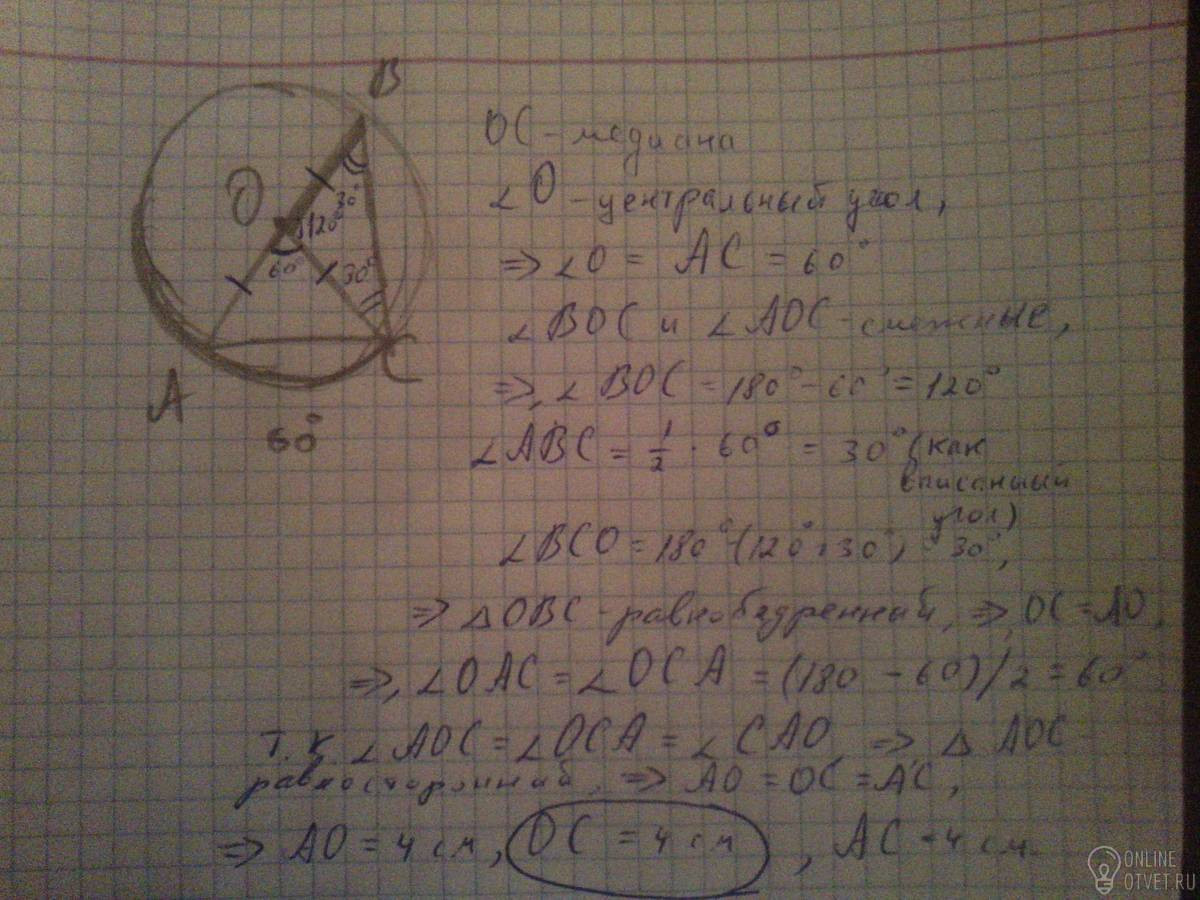 B
O
30°
120°
60°
30°
A
C
60°
OC - медиана
∠O - центральный угол,
⇒ ∠O = AC = 60°
∠BOC и ∠AOC - смежные,
⇒, ∠BOC = 180° - 60° = 120°
∠ABC = 1/2 · 60° = 30° (как
вписанный
угол)
∠BCO = 180° - (120° + 30°) = 30°,
⇒ △OBC - равнобедренный, ⇒, OC = AO,
⇒, ∠OAC = ∠OCA = (180 - 60)/2 = 60°
т.к ∠AOC = ∠OCA = ∠CAO, ⇒ △ AOC -
равносторонний, ⇒ AO = OC = AC,
⇒ AO = 4 см, OC = 4 см, AC = 4 см.
ONLINE
OTVET.RU